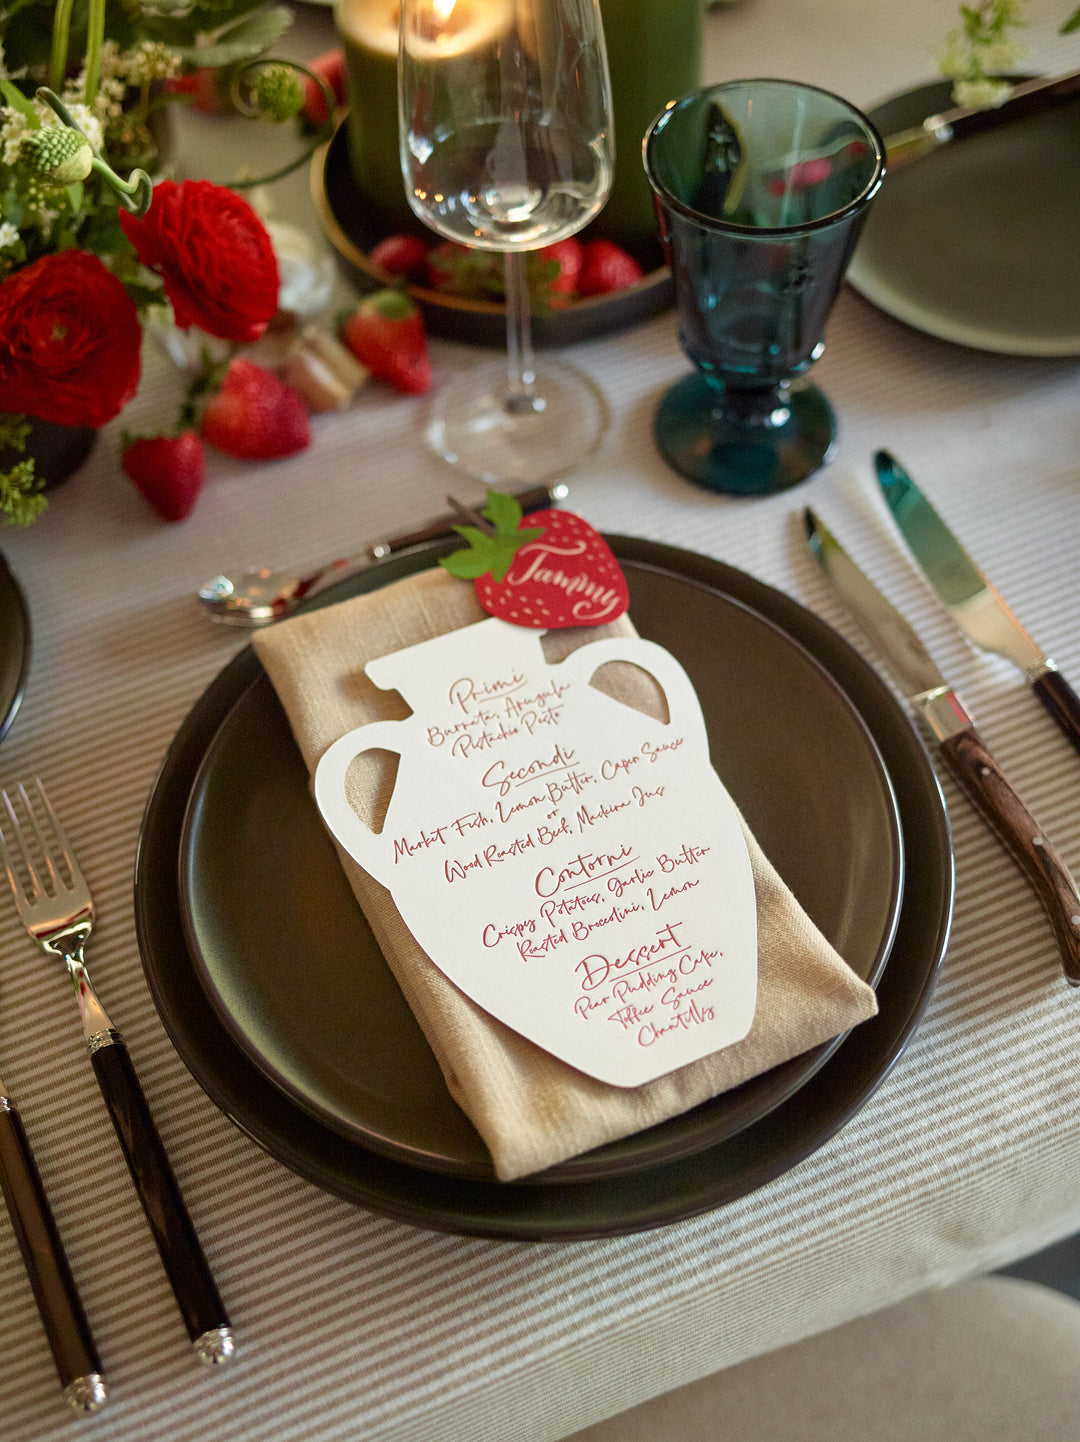 Tammy
Primi
Burrata, Arugula
Pistachio Pesto
Secondi
Market Fish, Lemon Butter, Caper Sauce
or
Wood Roasted Beef, Madeira Jus
Contorni
Crispy Potatoes, Garlic Butter
Roasted Broccolini, Lemon
Dessert
Pear Pudding Cake,
Toffee Sauce
Chantilly